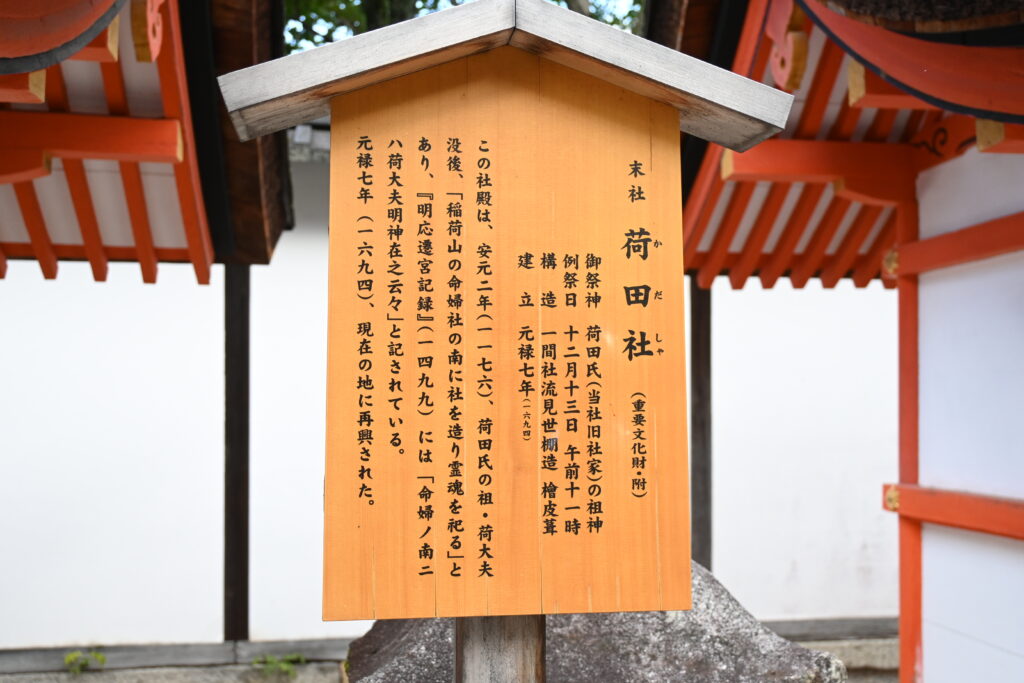 末社 荷田社 (重要文化財・附)
かだしゃ
御祭神 荷田氏(当社旧社家)の祖神
例祭日 十二月十三日 午前十一時
構造 一間社流見世棚造 檜皮葺
建立 元禄七年(一六九四)
この社殿は、安元二年(一一七六)、荷田氏の祖・荷大夫
没後、「稲荷山の命婦社の南に社を造り霊魂を祀る」と
あり、『明応遷宮記録』(一四九九)には「命婦ノ南ニ
ハ荷大夫明神在之云々」と記されている。
元禄七年(一六九四)、現在の地に再興された。